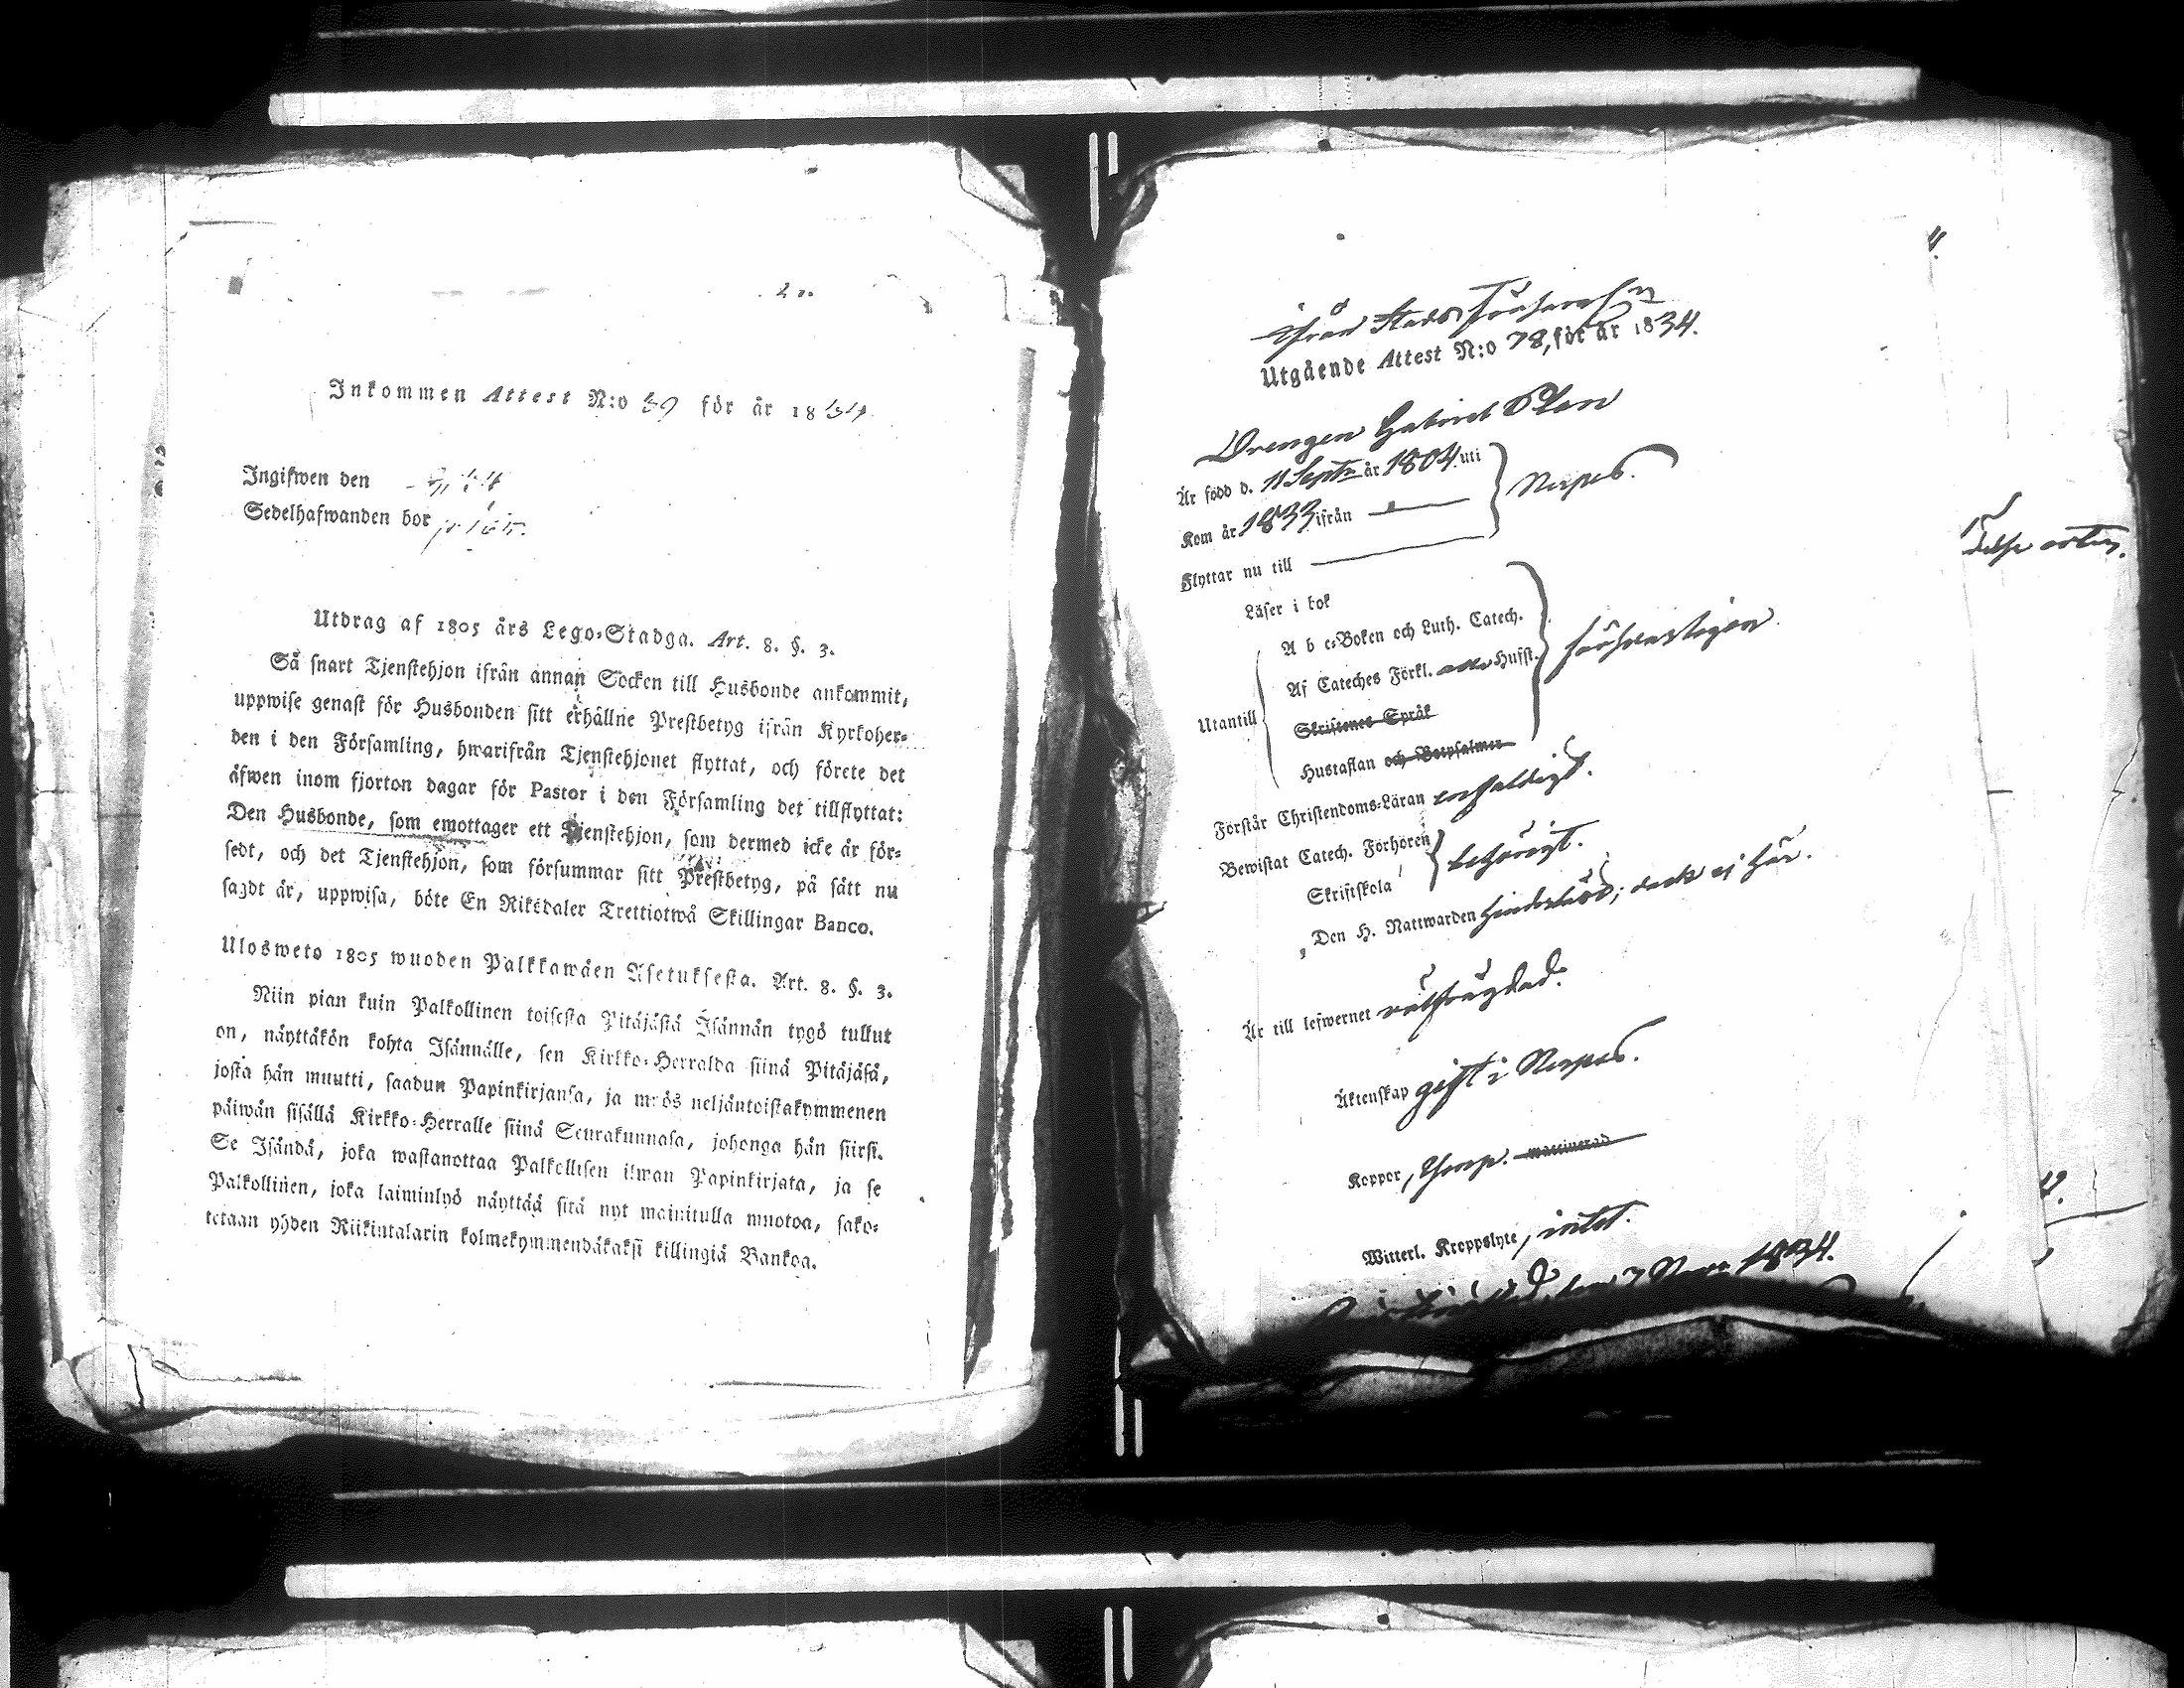 Inkommen Attest N:o 39 för år 1834
Ingifwen den
Sedelhafwanden bor
Utdrag af 1805 års Lego-Stadga. Art. 8. §. 3.
Så snart Tjenstehjon ifrån annan Socken till Husbonde ankommit,
uppwise genast för Husbonden sitt erhållne Prestbetyg ifrån Kyrkoher-
den i den Församling, hwarifrån Tjenstehjonet flyttat, och förete det
äfwen inom fjorton dagar för Pastor i den Församling det tillflyttat:
Den Husbonde, som emottager ett Tjenstehjon, som dermed icke är för-
sedt, och det Tjenstehjon, som försummar sitt Prestbetyg, på sätt nu
sagdt är, uppwisa, böte En Riksdaler Trettiotwå Skillingar Banco.
Ulosweto 1805 wuoden Palkkawäen Asetuksesta. Art. 8. §. 3.
Niin pian kuin Palkollinen toisesta Pitäjästä Isännän tygö tullut
on, näyttäkön kohta Isännälle, sen Kirkko-Herralda siinä Pitäjäsä,
josta hän muutti, saadun Papinkirjansa, ja myös neljäntoistakymmenen
päiwän sisällä Kirkko-Herralle siinä Seurakunnasa, johonga hän siirsi.
Se Isändä, joka wastanottaa Palkollisen ilman Papinkirjata, ja se
Palkollinen, joka laiminlyö näyttää sitä nyt mainitulla muotoa, sako-
tetaan yhden Riikintalarin kolmekymmendäkaksi killingiä Bankoa.
ifrån Stads Församl:n
Utgående Attest N:o 78, för år 1834.
Drengen Gabriel Plan
Är född d. 11 Sept. år 1804. uti
Nerpes.
Kom år 1833 ifrån
Flyttar nu till
Läser i bok
A b c-Boken och Luth. Catech.
försvarligen
Af Cateches Förkl. Husst.
Utantill
Skriftenes Språk
Hustaflan och Botpsalmer
Förstår Christendoms-Läran enfaldigt.
Bewistat Catech. Förhören
behörigt.
Skriftskola
Den H. Nattwarden hinderlös; dock ej här.
Är till lefwernet välfrägdad.
Äktenskap gift i Nerpes.
Koppor, vaccinerad
Witterl. Kroppslyte, intet.
den 7 1834.